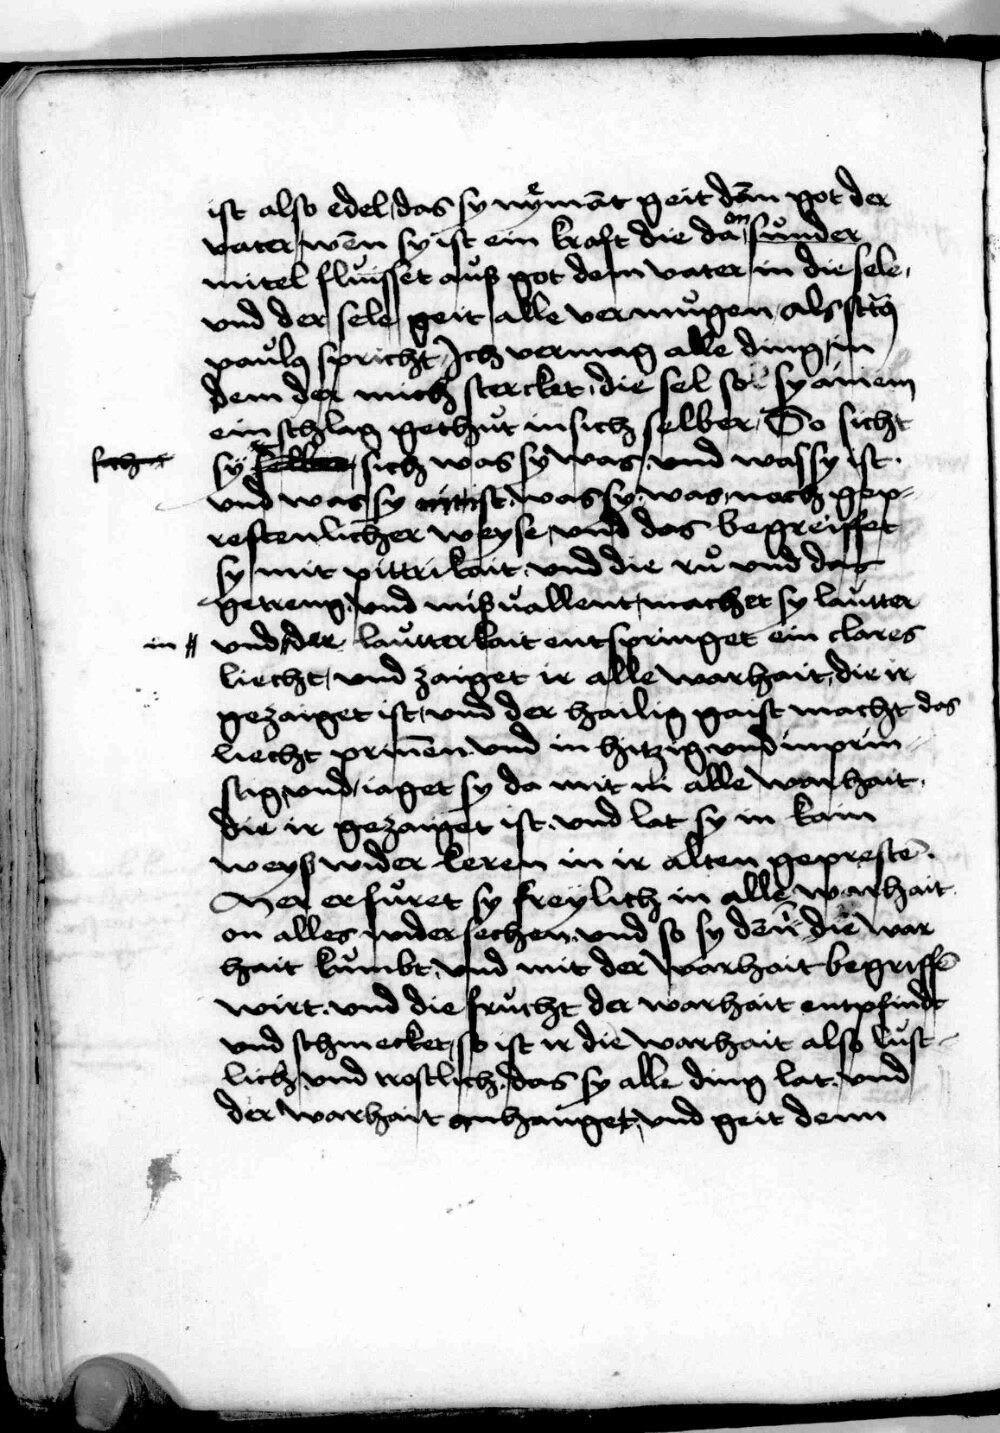 ist also edel / das sy nyemāt geit dān got der
vater / wēn sy ist ein kraft die da on sůnder
mitel flůisset aůß got dem vater in die sele /
vnd der sele geit alle vermůgen / als sctůs
paůlꝰ spricht / Jch vermag alle ding / in
dem der mich stercket / die sel so sy ainem
ein schlag gethůt in sich selber / So sicht
sy sich was sy was . vnd was sy ist .
vnd was sy nitt ist . was sy was / nach gep-
restenlicher weyse / vnd das begreiffet
sy mit pittrikait . vnd die rů vnd das
getreng / vnd mißvallent / machet sy laůtter
in // vnd / der laůtterkait entspringet ein clares
liecht / vnd zaiget ir alle warhait / die ir
gezaiget ist / vnd der hailig gaist macht das
liecht prinēn . vnd in hitzig vnd inprin-
stig / vnd / iaget sy da mit in alle warhait .
die ir gezaiget ist . vnd lat sy in kain
weyß wider keren in ir alten geprestē .
Mer er fůret sy freylich in alle warhait
on alles widersechen . vnd so sy in die war
hait kůmbt / vnd mit der warhait begriffē
wirt . vnd die frůcht der warhait entpfindt
vnd schmecket / so ist ir die warhait also lůst-
lich / vnd trostlich / das sy alle ding lat . vnd
der warhait anhanget / vnd geit denn